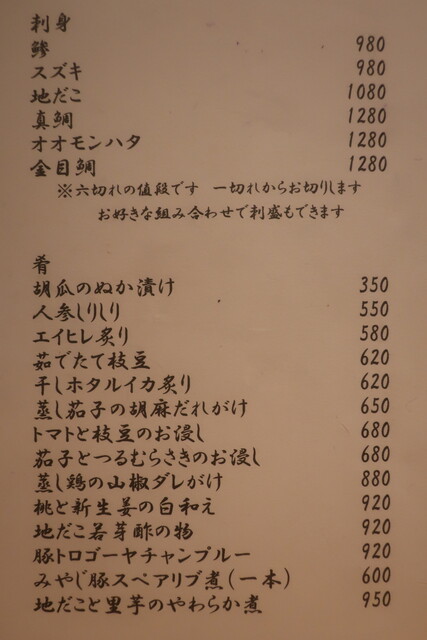 刺身
鯵 980
スズキ 980
地だこ 1080
真鯛 1280
オオモンハタ 1280
金目鯛 1280
※六切れの値段です 一切れからお切りします
お好きな組み合わせで刺盛もできます
肴
胡瓜のぬか漬け 350
人参しりしり 550
エイヒレ炙り 580
茹でたて枝豆 620
干しホタルイカ炙り 620
蒸し茄子の胡麻だれがけ 650
トマトと枝豆のお浸し 680
茄子とつるむらさきのお浸し 680
蒸し鶏の山椒ダレがけ 880
桃と新生姜の白和え 920
地だこ若芽酢の物 920
豚トロゴーヤチャンプルー 920
みやじ豚スペアリブ煮(一本) 600
地だこと里芋のやわらか煮 950